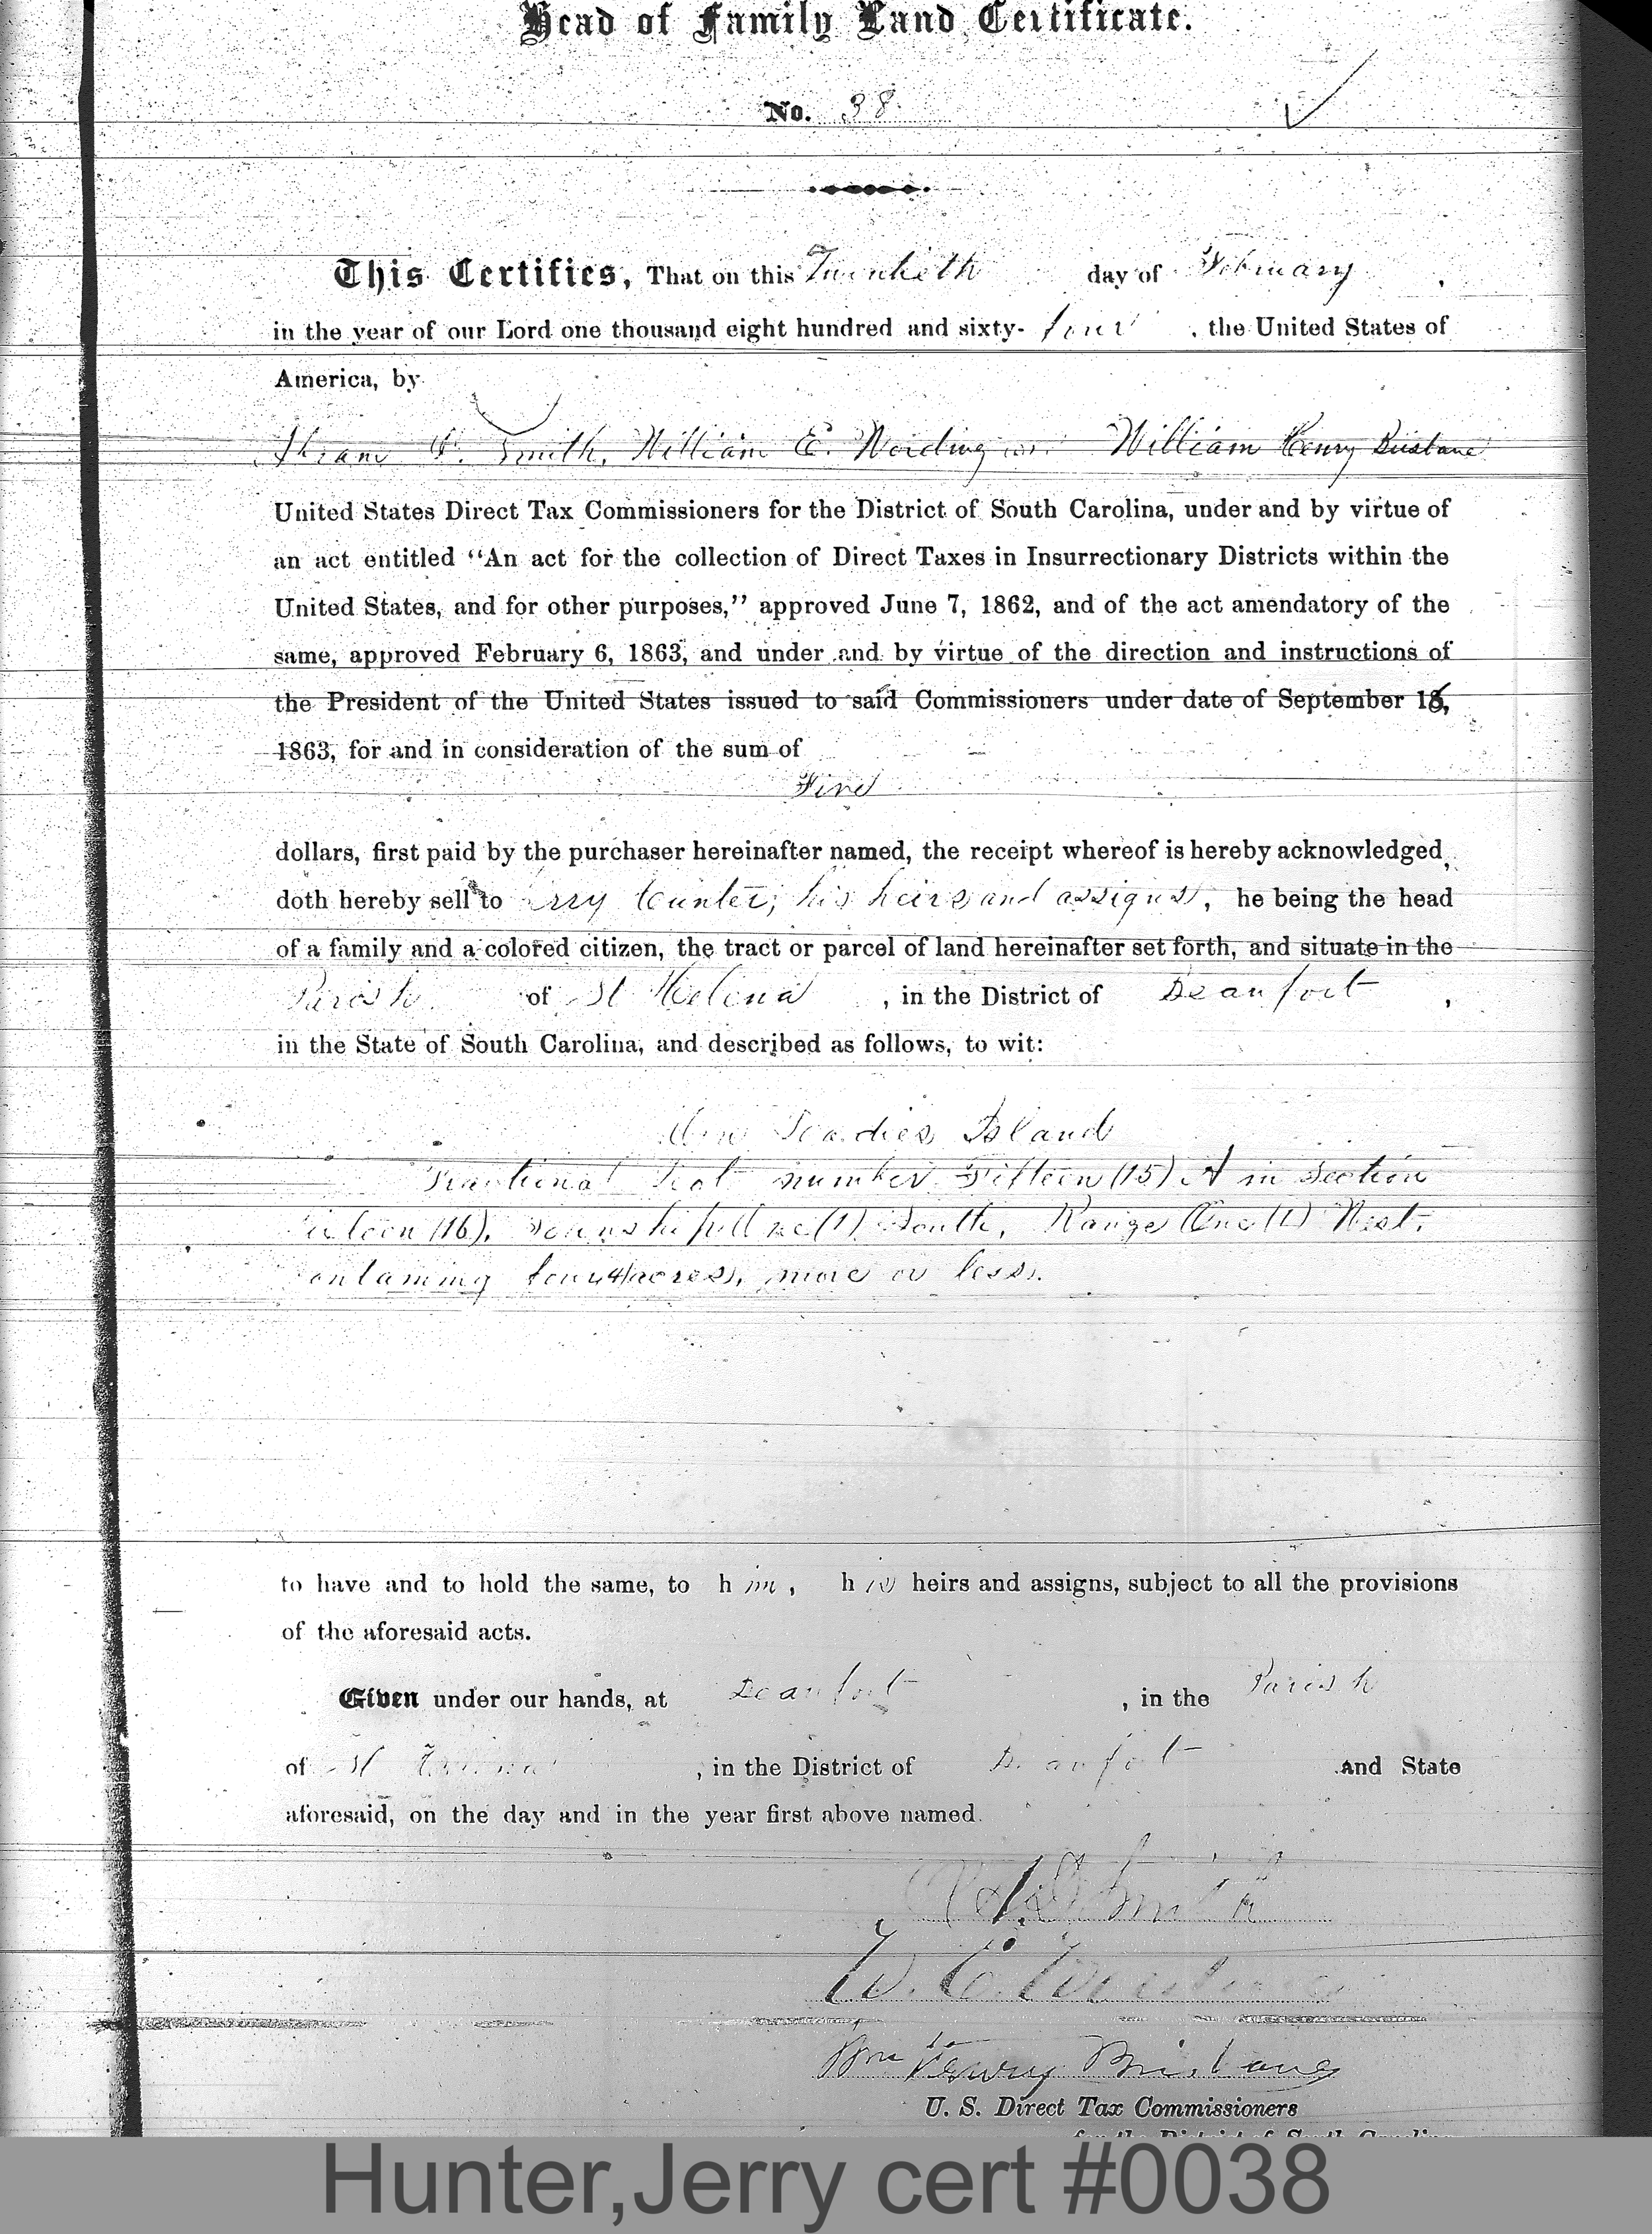 Head of Family Land Certificate.
No. 38
This Certifies, That on this Twentieth day of February,
in the year of our Lord one thousand eight hundred and sixty-four, the United States of
America, by
Abram D. Smith, William E. Wording and William Henry Brisbane
United States Direct Tax Commissioners for the District of South Carolina, under and by virtue of
an act entitled “An act for the collection of Direct Taxes in Insurrectionary Districts within the
United States, and for other purposes,” approved June 7, 1862, and of the act amendatory of the
same, approved February 6, 1863, and under and by virtue of the direction and instructions of
the President of the United States issued to said Commissioners under date of September 16,
1863, for and in consideration of the sum of
Five
dollars, first paid by the purchaser hereinafter named, the receipt whereof is hereby acknowledged,
doth hereby sell to Jerry Hunter, his heirs and assigns, he being the head
of a family and a colored citizen, the tract or parcel of land hereinafter set forth, and situate in the
Parish of St Helena, in the District of Beaufort,
in the State of South Carolina, and described as follows, to wit:
On Ladies Island
Fractional Lot number Fifteen (15) A in Section
Sixteen (16), Township One (1) South, Range One (1) West,
containing four (4) acres, more or less.
to have and to hold the same, to him, his heirs and assigns, subject to all the provisions
of the aforesaid acts.
Given under our hands, at Beaufort, in the Parish
of St Helena, in the District of Beaufort and State
aforesaid, on the day and in the year first above named.
A. D. Smith
W. E. Wording
Wm Henry Brisbane
U. S. Direct Tax Commissioners
for the District of South Carolina
Hunter,Jerry cert #0038